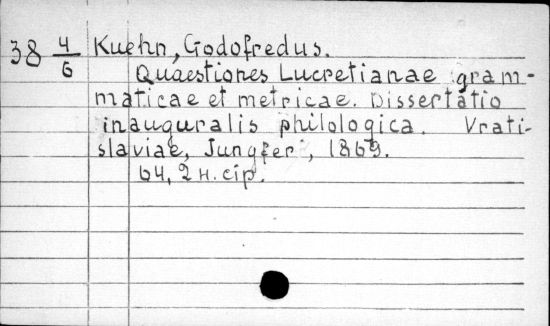 38 4/6 Kuehn, Godofredus.
Quaestiones Lucretianae gram-
maticae et metricae. Dissertatio
inauguralis philologica. Vrati-
slaviae, Jungfer, 1869.
64, 2 н. стр.